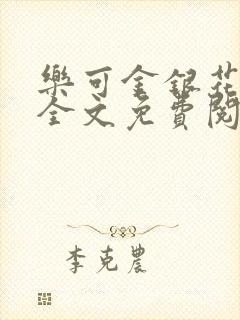 樂可金銀花
全文免費閱
李克農